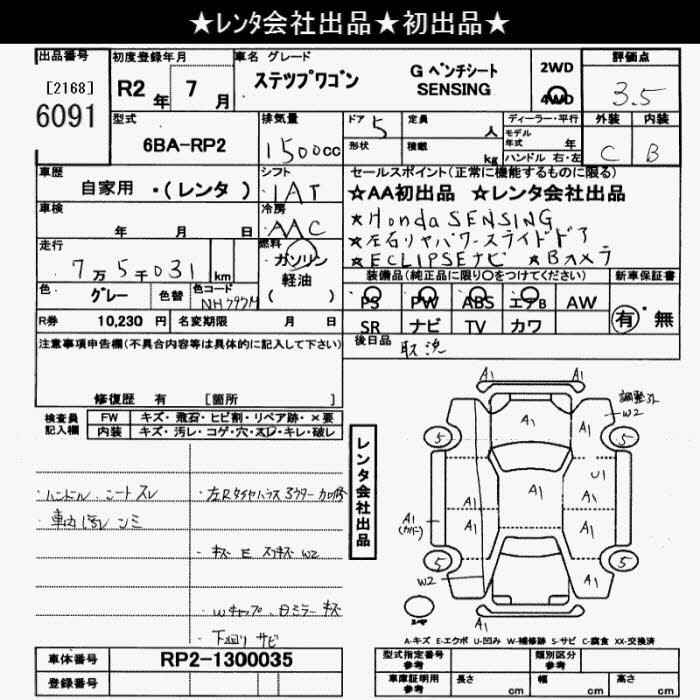 ★レンタ会社出品★初出品★
出品番号 初度登録年月 車名 グレード 評価点
[2168] R2年 7月 ステップワゴン G ベンチシート SENSING 2WD 4WD 3.5
6091
型式 排気量 ドア 定員 ディーラー・平行 外装 内装
6BA-RP2 1500cc 5 人 モデル年式 年 C B
形状 積載 kg ハンドル 右・左
車歴 シフト セールスポイント(正常に機能するものに限る)
自家用 ・(レンタ) IAT ☆AA初出品 ☆レンタ会社出品
車検 冷房 ★Honda SENSING
年 月 日 AAC ★左右リヤパワースライドドア
走行 燃料 ★ECLIPSEナビ ★Bカメラ
7万5千031 km ガソリン 軽油 ( )
装備品(純正品に限り○をつけてください) 新車保証書
色 グレー 色替 色コード NH797M
PS PW ABS エアB AW 有・無
R券 10,230 円 名変期限 月 日
SR ナビ TV カワ
注意事項申告欄(不具合内容等は具体的に記入して下さい) 後日品 取説
修復歴 有 [箇所 ]
検査員記入欄 FW キズ・飛石・ヒビ割・リペア跡・×要
内装 キズ・汚レ・コゲ・穴・スレ・キレ・破レ
・ハンドル、シートスレ
・車内汚レ シミ
・キズ E スリキズ W2
・Wキャップ、日ミラーキズ
・下廻りサビ
レンタ会社出品
A1
A1 A1 調整ヱ W2
5 5
A1 U1
A1 A1 A1 A1
A1 (カバー)
5 5
W2 A1
A1
A-キズ E-エクボ U-凹み W-補修跡 S-サビ C-腐食 XX-交換済
車体番号 RP2-1300035 型式指定番号 参考 類別区分 参考
登録番号 車庫証明用 参考 長さ cm 幅 cm 高さ cm